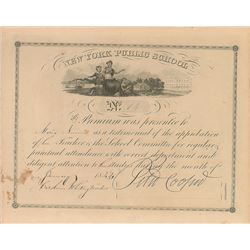 NEW YORK PUBLIC SCHOOL
No.
A Premium was presented to
as a testimonial of the approbation
of the Teachers & the School Committee for regular &
punctual attendance with correct deportment and
diligent attention to Studies during the month of
Peter Cooper